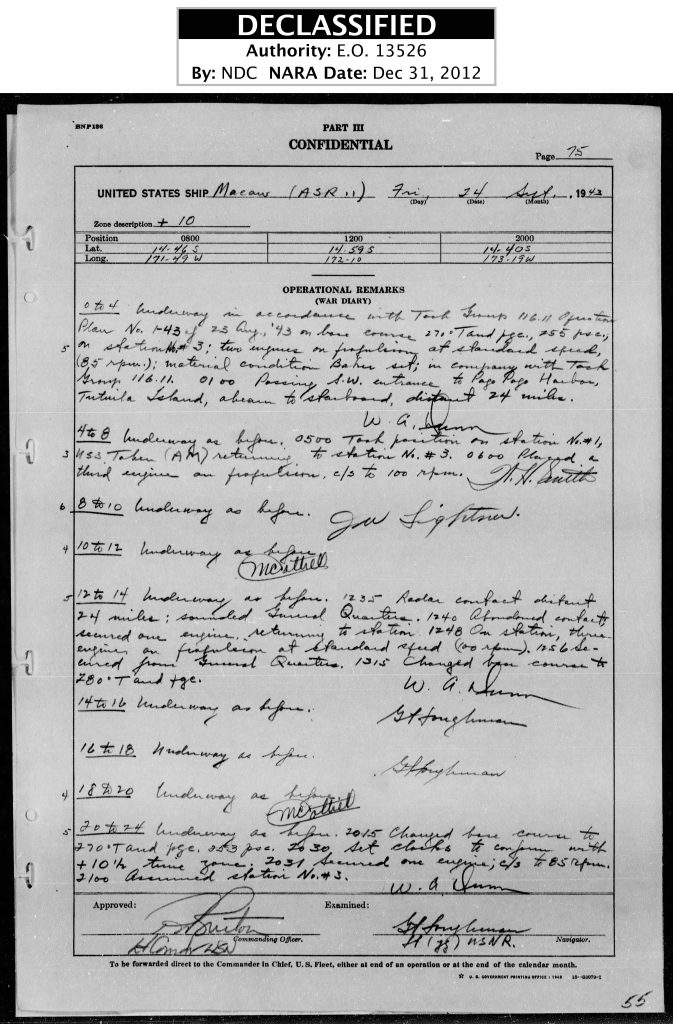 DECLASSIFIED
Authority: E.O. 13526
By: NDC NARA Date: Dec 31, 2012
PART III
CONFIDENTIAL
Page 75
UNITED STATES SHIP Macaw (ASR 11) Fri. 24 Sept. , 1943
(Day) (Date) (Month)
Zone description + 10
Position 0800 1200 2000
Lat. 14-46 S 14-59 S 14-40 S
Long. 171-49 W 172-10 173-19 W
OPERATIONAL REMARKS
(WAR DIARY)
0 to 4 Underway in accordance with Task Group 116.11 Operation
Plan No. 1-43 of 23 Aug., '43 on base course 270°T and pgc., 255 psc.,
5 on station No. # 3; two engines on propulsion at standard speed,
(85 rpm.); material condition Baker set; in company with Task
Group 116.11. 0100 Passing S.W. entrance to Pago Pago Harbor,
Tutuila Island, abeam to starboard, distant 24 miles.
W. A. Dunn
4 to 8 Underway as before. 0500 Took position on station No. #1,
3 USS (AM) returning to station No. # 3. 0600 Placed a
third engine on propulsion, c/s to 100 rpm. Smith
6 8 to 10 Underway as before. Lightner.
4 10 to 12 Underway as before
5 12 to 14 Underway as before. 1235 Radar contact distant
24 miles; sounded General Quarters. 1240 Abandoned contact;
secured one engine, returning to station. 1248 On station, three
engines on propulsion at standard speed (100 rpm). 1256 Se-
cured from General Quarters. 1315 Changed base course to
280°T and pgc.
W. A. Dunn
14 to 16 Underway as before.
Loughman
16 to 18 Underway as before.
Loughman
4 18 to 20 Underway as before
5 20 to 24 Underway as before. 2015 Changed base course to
270°T and pgc. 253 psc. 2030, set clocks to conform with
+ 10½ time zone. 2031 Secured one engine; c/s to 85 rpm.
2100 Assumed station No. #3.
W. A. Dunn
Approved: Examined:
Loughman
Lt (jg) USNR.
Commanding Officer. Navigator.
To be forwarded direct to the Commander in Chief, U. S. Fleet, either at end of an operation or at the end of the calendar month.
☆ U. S. GOVERNMENT PRINTING OFFICE : 1943
55